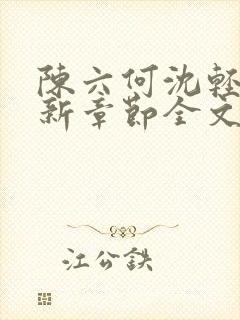 陳六何沈輕
新章節全文
江公鉄